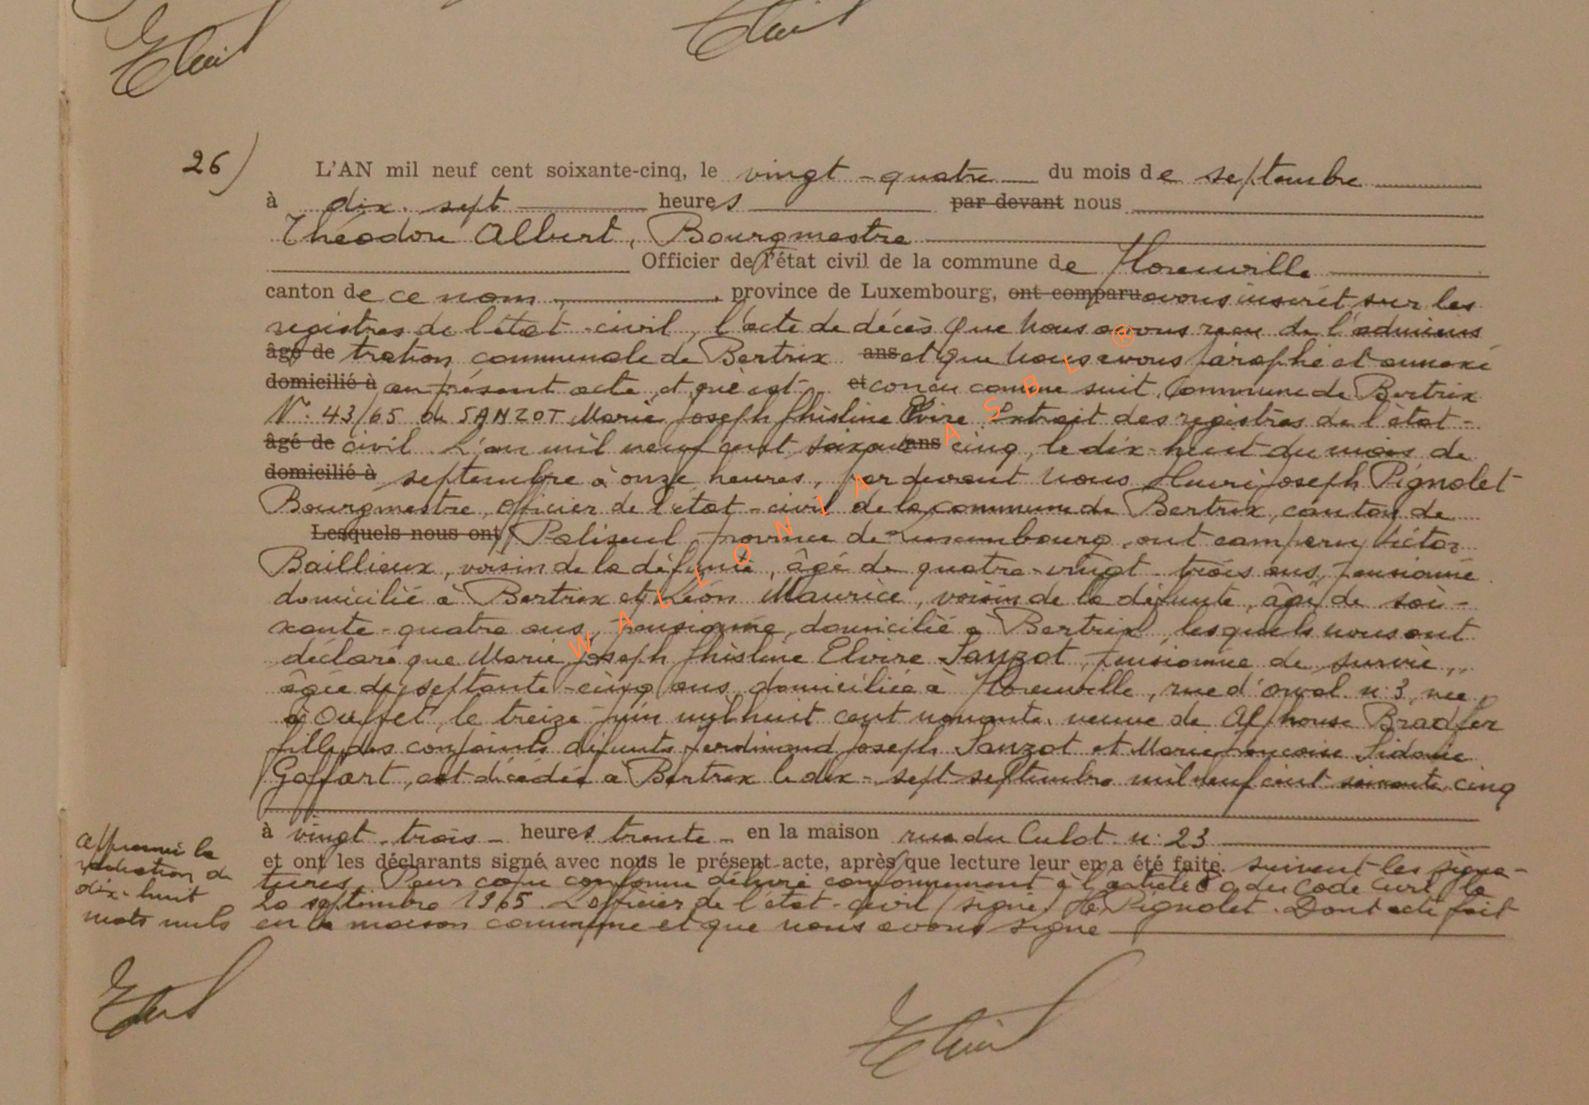 26) L'AN mil neuf cent soixante-cinq, le vingt-quatre du mois de septembre
à dix-sept heures par devant nous
Théodore Albert, Bourgmestre
Officier de l'état civil de la commune de Florenville
canton de ce nom, province de Luxembourg, ont comparu avons inscrit sur les
registres de l'état-civil, l'acte de décès que nous avons reçu de l'adminis
âgé de tration communale de Bertrix ans et que nous avons paraphé et annexé
domicilié à au présent acte, et qui est et conçu comme suit. Commune de Bertrix
N° 43/65 de SANZOT Marie Joseph Ghisline Elvire Extrait des registres de l'état-
âgé de civil. L'an mil neuf cent soixante ans cinq, le dix-huit du mois de
domicilié à septembre à onze heures, par devant nous Henri Joseph Pignolet
Bourgmestre, Officier de l'état-civil de la commune de Bertrix, canton de
Lesquels nous ont Paliseul, province de Luxembourg, ont comparu Victor
Baillieux, voisin de la défunte, âgé de quatre-vingt-trois ans, pensionné
domicilié à Bertrix et Léon Maurice, voisin de la défunte, âgé de soi-
xante-quatre ans, pensionné, domicilié à Bertrix, lesquels nous ont
déclaré que Marie Joseph Ghisline Elvire Sanzot, pensionnée de survie,
âgée de septante-cinq ans, domiciliée à Florenville, rue d'Orval n° 3, née
à Ouffet, le treize juin mil huit cent nonante, veuve de Alphonse Bradfer
fille des conjoints défunts Ferdinand Joseph Sanzot et Marie Françoise Sidonie
Goffart, est décédée à Bertrix le dix-sept septembre mil neuf cent soixante cinq
à vingt-trois heures trente en la maison rue du Culot n° 23
et ont les déclarants signé avec nous le présent acte, après que lecture leur en a été faite. suivent les signa-
tures. Pour copie conforme délivré conformément à l'article 80 du Code Civil, le
20 septembre 1965. L'officier de l'état-civil (signé) H. Pignolet. Dont acte fait
en la maison commune et que nous avons signé
Approuvé la
radiation de
dix-huit
mots nuls
WALLONIA ASBL ®